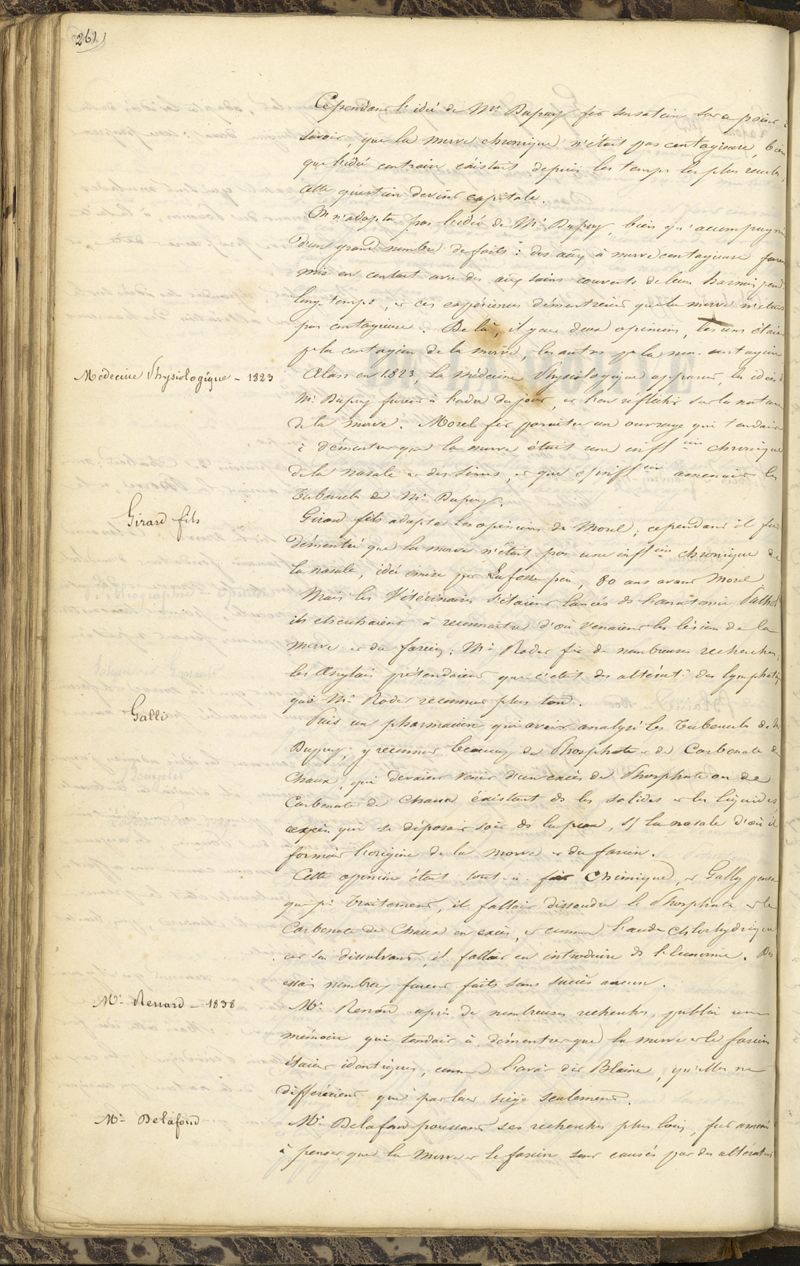 261
Cependant l'idée de Mr Dupuy fit sensation sur ce point
savoir, que la morve chronique n'était pas contagieuse, bien
que l'idée contraire existait depuis les temps les plus reculés,
cette question devint capitale.
On n'adopta pas l'idée de Mr Dupuy, bien qu'accompagnée
d'un grand nombre de faits : des aux à morve contagieuse furent
mis en contact avec des aux sains couverts de leurs harnais pend
longtemps, et ces expériences démontrèrent que la morve n'était
pas contagieuse. De là, il y eut deux opinions, les uns étaient
pr la contagion de la morve, les autres pr la non contagion
Médecine Physiologique - 1823
Alors en 1823, la médecine Physiologique apparut, les idées
Mr Dupuy furent à l'ordre du jour, et l'on réfléchit sur la nature
de la morve. Morel fit paraître un ouvrage qui tendait
à démontrer que la morve était une inflion chronique
de la nasale et des sinus, et que cette inflion amenait les
Tubercules de Mr Dupuy.
Girard fils
Girard fils adopta les opinions de Morel ; cependant il fut
démontré que la morve n'était pas une inflion chronique de
la nasale, idée émise par Lafosse père, 80 ans avant Morel
Mais les Vétérinaires s'étaient lancés ds l'anatomie Pathol
ils cherchaient à reconnaître d'où venaient les lésions de la
morve et du farcin. Mr Rodet fit de nombreuses recherches,
les Anglais prétendaient que c'était des altérat des lymphatiq
que Mr Rodet reconnut plus tard.
Galli
Puis un pharmacien qui avait analysé les Tubercules de Mr
Dupuy, y reconnut beaucoup de Phosphate et de Carbonate de
chaux, qui devaient venir d'un excès de Phosphate ou de
Carbonate de Chaux existant ds les solides et les liquides
et qui se déposait soit ds la peau, s/ la nasale d'où il
formait l'origine de la morve et du farcin.
Cette opinion était tout-à-fait chimique, et Gally pensa
que pr Traitement, il fallait dissoudre le Phosphate et le
Carbonate de Chaux en excès, et comme l'acide Chlorhydrique
est un dissolvant, il fallait en introduire ds l'Economie. Des
essais nombreux furent faits sans succès aucun.
Mr Renard - 1838
Mr Renard après de nombreuses recherches, publia un
mémoire qui tendait à démontrer que la morve et le farcin
étaient identiques, comme l'avait dit Blaine, qu'elles ne
différaient que par leur siège seulement.
Mr Delafond
Mr Delafond poussant ses recherches plus loin, fut amené
à penser que la morve et le farcin sont causés par des altérations